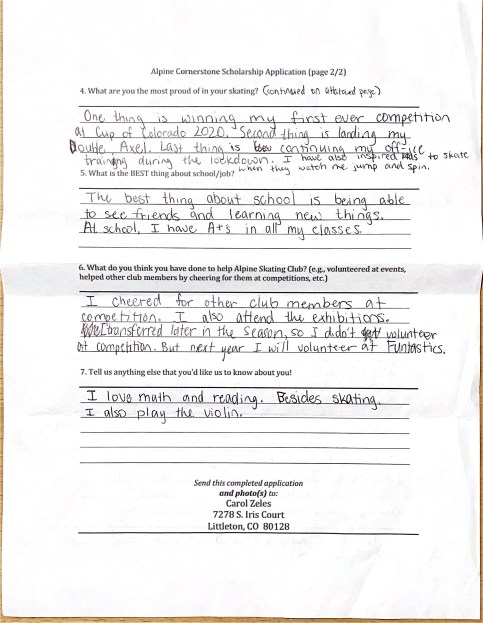 Alpine Cornerstone Scholarship Application (page 2/2)
4. What are you the most proud of in your skating? (continued on attatced page)
One thing is winning my first ever competition
at Cup of Colorado 2020. Second thing is landing my
Double Axel. Last thing is continuing my off-ice
training during the lockdown. I have also inspired to skate
when they watch me jump and spin.
5. What is the BEST thing about school/job?
The best thing about school is being able
to see friends and learning new things.
At school, I have A+s in all my classes.
6. What do you think you have done to help Alpine Skating Club? (e.g., volunteered at events,
helped other club members by cheering for them at competitions, etc.)
I cheered for other club members at
competition. I also attend the exhibitions.
I transferred later in the season, so I didn't volunteer
at competition. But next year I will volunteer at Funtastics.
7. Tell us anything else that you'd like us to know about you!
I love math and reading. Besides skating,
I also play the violin.
Send this completed application
and photo(s) to:
Carol Zeles
7278 S. Iris Court
Littleton, CO 80128